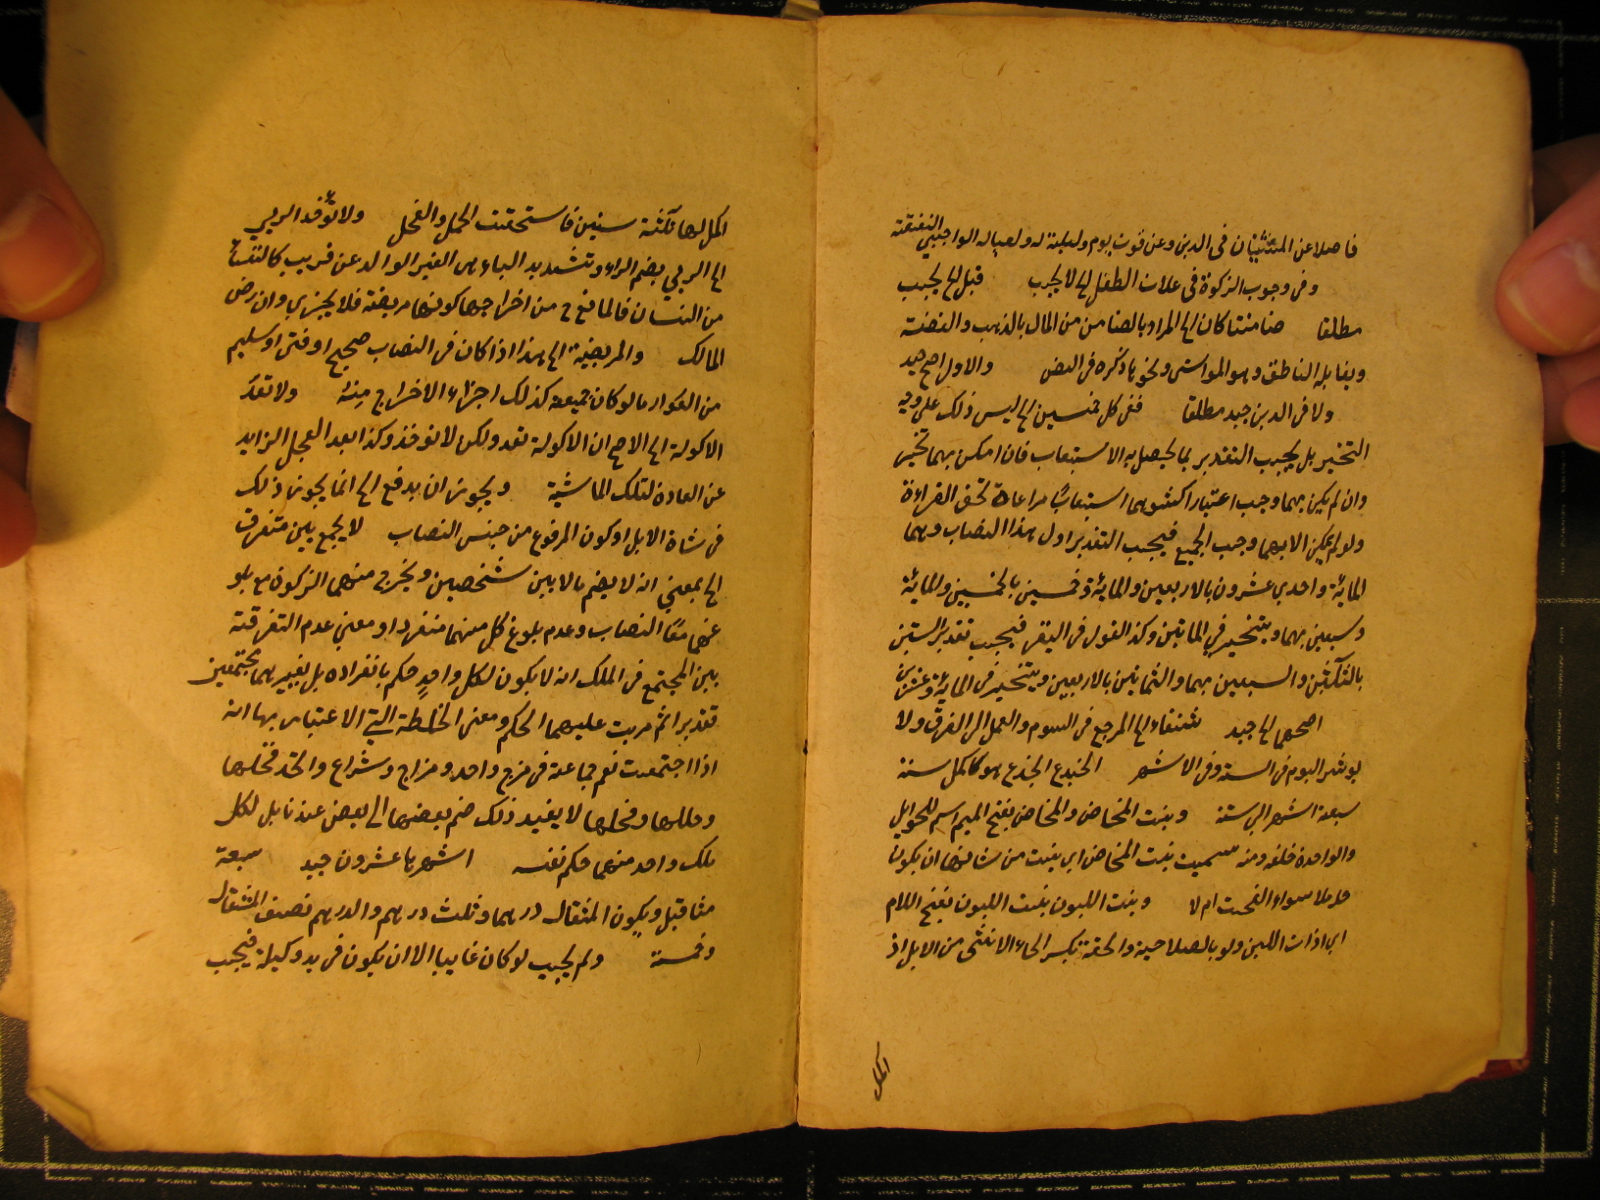 فاضلا عن المستثنيات في الدين وعن قوت يوم وليلة له ولعياله الواجبي النفقة
وفي وجوب الزكوة في غلات الطفل الخ لا يجب قبل الخ يجب
مطلقا ضامنتا كان الخ المراد بالصامت من المال بالذهب والفضة
ويقابله الناطق وهو المواشي ونحو ما ذكره في البعض والاول اصح جيد
ولا في الدين جيد مطلقا ففي كل خمسين الخ ليس ذلك على وجه
التخيير بل يجب التقدير بما يحصل به الاستيعاب فان امكن بهما تخير
وان لم يكن بهما وجب اعتبار اكثرهما استيعابًا مراعاة لحق الفقراء
ولو لم يمكن الا بهما وجب الجمع فيجب التقدير اول هذا النصاب وهما
المائة واحدي عشرون بالاربعين والمائة وخمسين بالخمسين والمائة
وسبعين بهما ويتخير في الماتين وكذا القول في البقر فيجب تقدير الستين
بالثلاثين والسبعين بهما والثمانين بالاربعين ويتخير في المائة وعشرين
اصحهما الخ جيد شنقاء الخ المرجع في السوم والعمل الى العرف ولا
يوثر اليوم في السنة وفي الاشهر الجذع الجذع هو ما كمل سنة
سبعة اشهر الى ستة وبنت المخاض والمخاض بفتح الميم اسم للحوامل
والواحدة خلفه ومنه سميت بنت المخاض اي بنت من شانها ان يكون
حاملا سواء القحت ام لا وبنت اللبون بنت اللبون بفتح اللام
اي ذات اللبن ولو بالصلاحية والحقة بكسر الحاء الانثى من الابل اذ
اكمل
اكمل لها ثلثة سنين فاستحقت الحمل والفحل ولا تؤخذ الربى
الخ الربي بضم الراء وتشديد الباء هي الغير الوالد عن قريب كالنفساء
من النسان فالمانع ح من اخراجها كونها مريضة فلا يجزي وان رضى
المالك والمريضة الخ هذا اذا كان في النصاب صحيح او فتى او سليم
من العوار ما لو كان جميعه كذلك اجزاء الاخراج منه ولا تعد
الاكولة الخ الاصح ان الاكولة تعد ولكن لا توخذ وكذا بعد الفحل الزايد
عن العادة لتلك الماشية ويجوز ان يدفع الخ انما يجوز ذلك
في شاة الابل او كون المرفوع من جنس النصاب لا يجمع بين متفرق
الخ بمعني انه لا يضم مالا بين شخصين ويخرج منهما الزكوة مع بلو
غهما معًا النصاب وعدم بلوغ كل منهما منفردا ومعني عدم التفرقة
بين المجتمع في الملك انه لا يكون لكل واحدٍ حكم بانفراده بل يغير بهما مجتمعين
تقدير اثم مرتب عليهما الحكم ومعنى الخلطة التي لا اعتبار بها انه
اذا اجتمعت نعم جماعة في مرح واحد ومراح ومشراع واتحد فحلها
وحالبها وفحلها لا يفيد ذلك ضم بعضها الى بعض عندنا بل لكل
ملك واحد منهما حكم نفسه اشهر ما عشرون جيد سبعة
مثاقيل ويكون المثقال درهما وثلث درهم والدرهم نصف المثقال
وخمسة ولم يجب لو كان غايبا الا ان يكون في يد وكيله فيجب